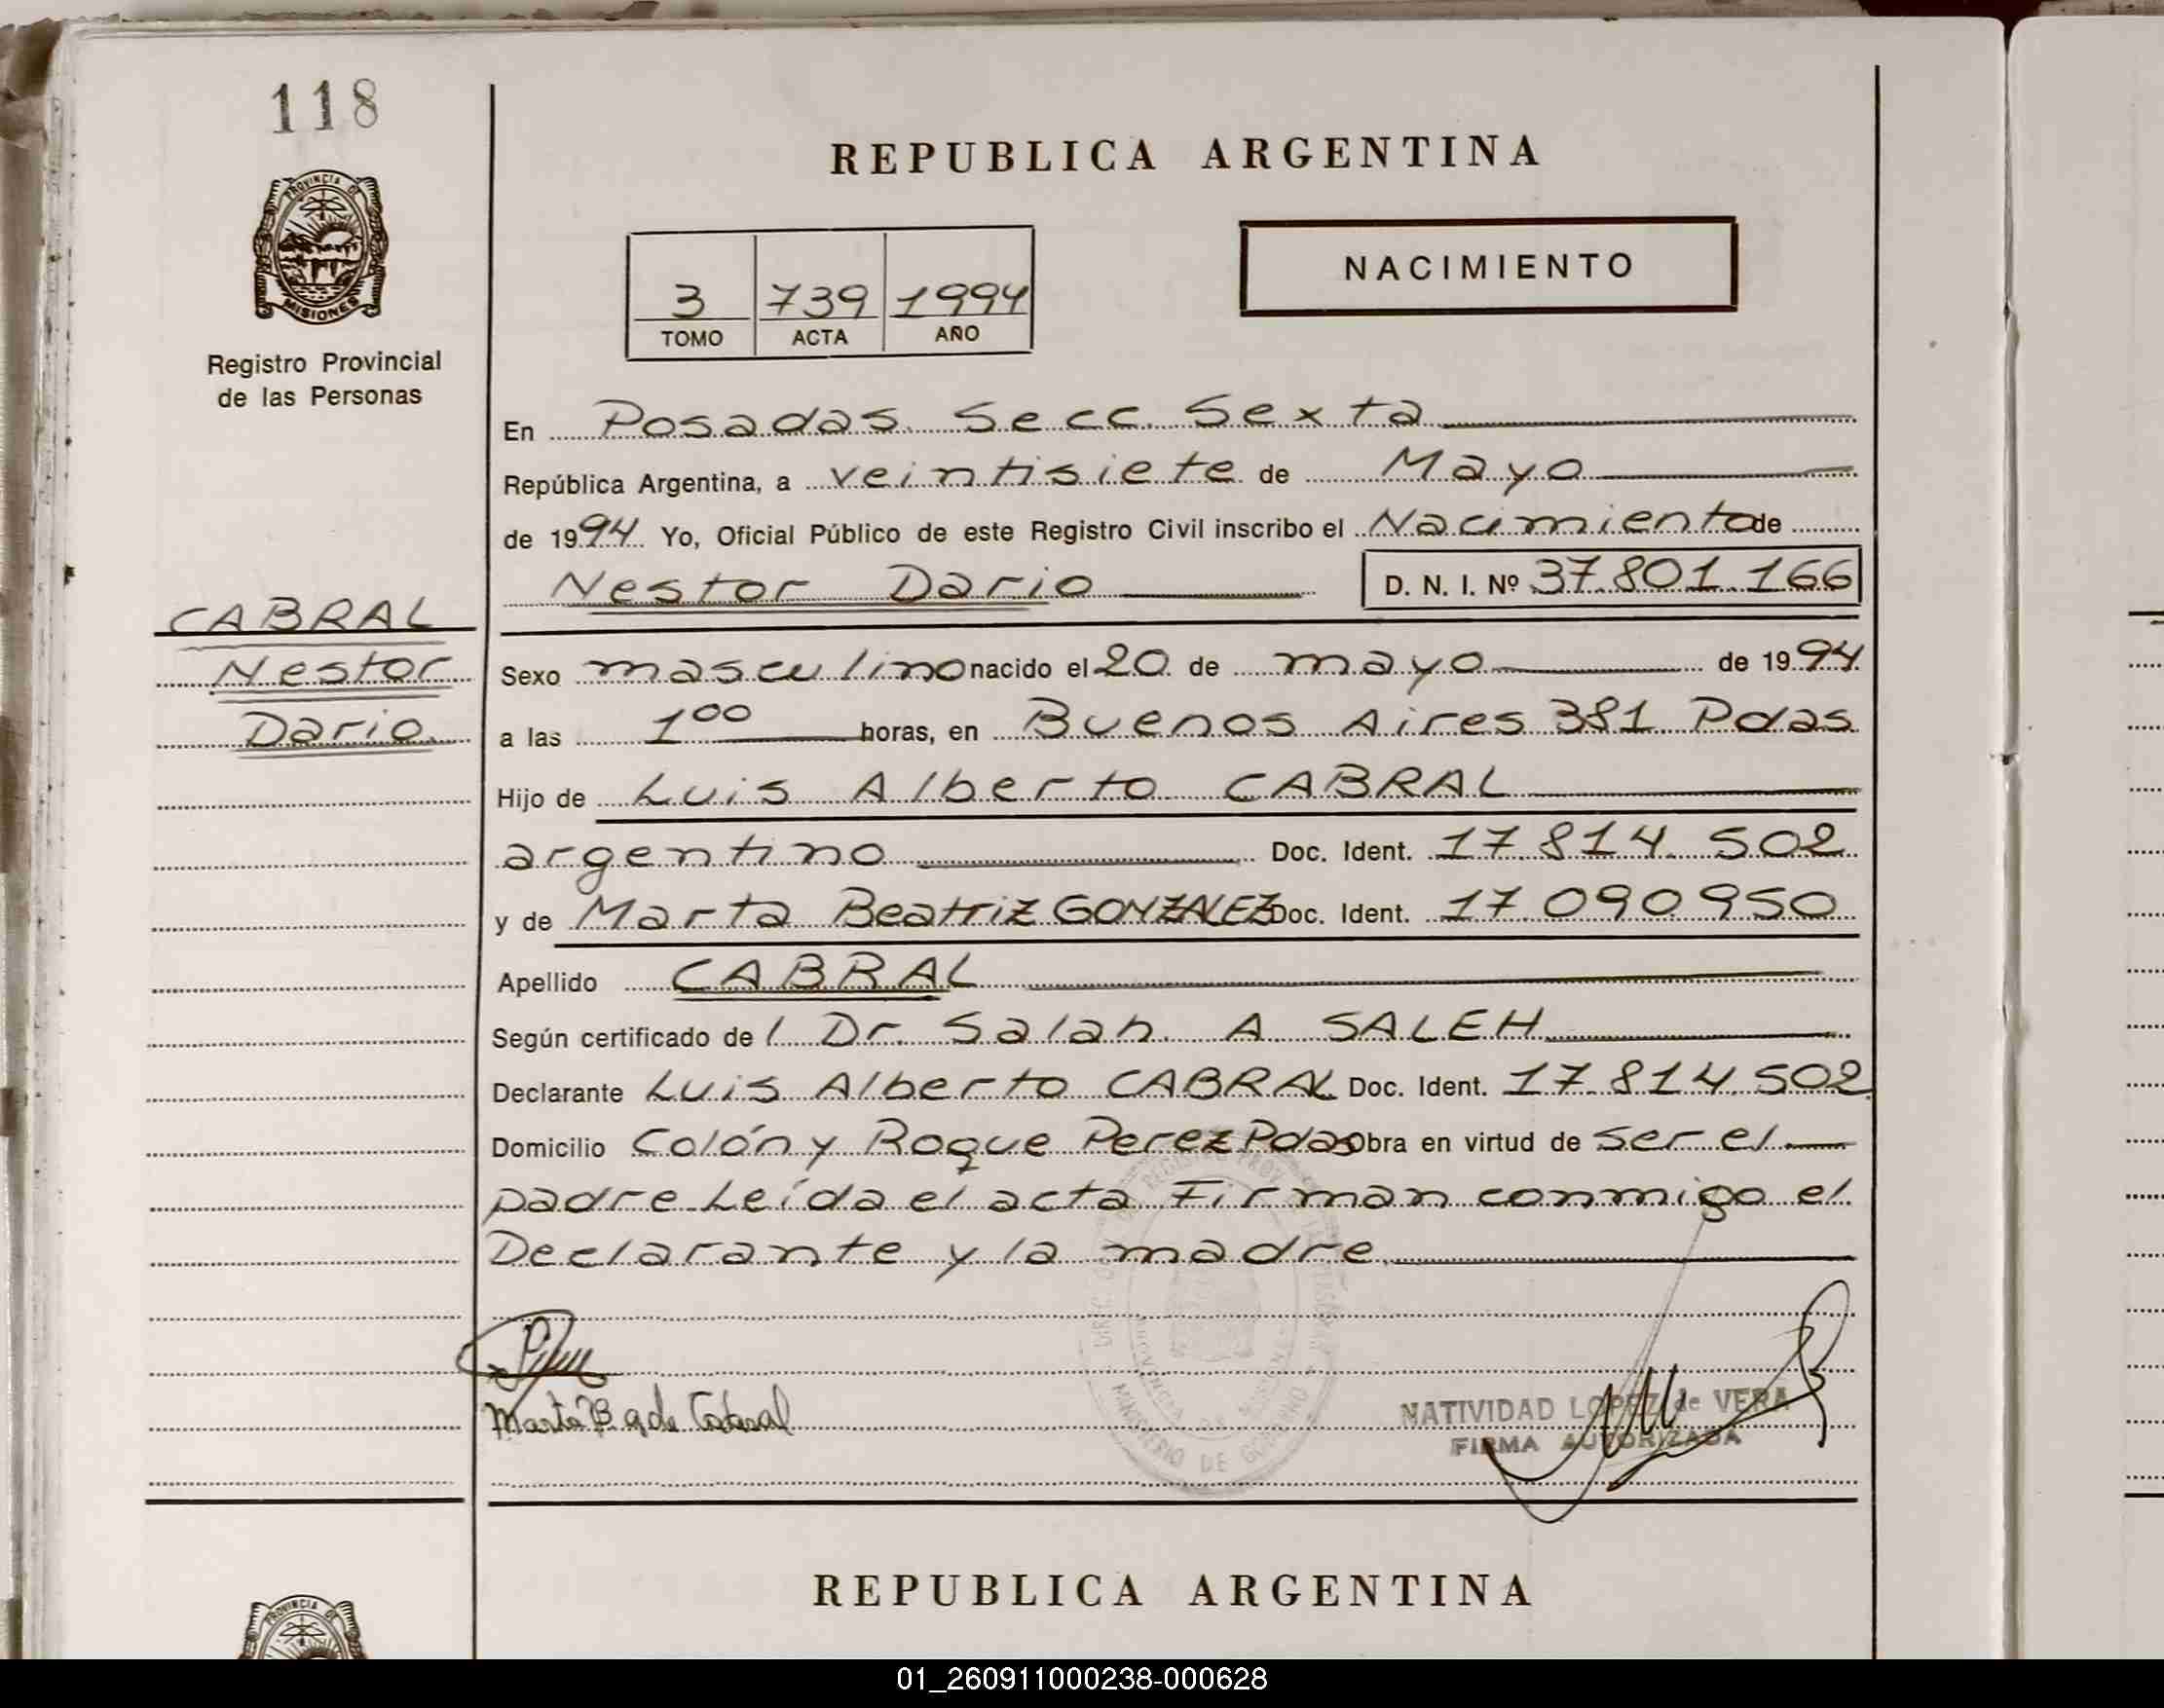 118
REPUBLICA ARGENTINA
PROVINCIA DE
MISIONES
Registro Provincial
de las Personas
3 739 1994
TOMO ACTA AÑO
NACIMIENTO
En Posadas Secc. Sexta
República Argentina, a veintisiete de Mayo
de 1994 Yo, Oficial Público de este Registro Civil inscribo el Nacimiento de
Nestor Dario D. N. I. Nº 37.801.166
CABRAL
Nestor
Dario
Sexo masculino nacido el 20 de mayo de 1994
a las 1⁰⁰ horas, en Buenos Aires 381 Pdas
Hijo de Luis Alberto CABRAL
argentino Doc. Ident. 17.814.502
y de Marta Beatriz GONZALEZ Doc. Ident. 17.090.950
Apellido CABRAL
Según certificado del Dr. Salah A SALEH
Declarante Luis Alberto CABRAL Doc. Ident. 17.814.502
Domicilio Colón y Roque Perez Pdas Obra en virtud de ser el
padre Leída el acta Firman conmigo el
Declarante y la madre
Marta B g de Cabral
NATIVIDAD LOPEZ de VERA
FIRMA AUTORIZADA
REPUBLICA ARGENTINA
PROVINCIA DE
01_260911000238-000628